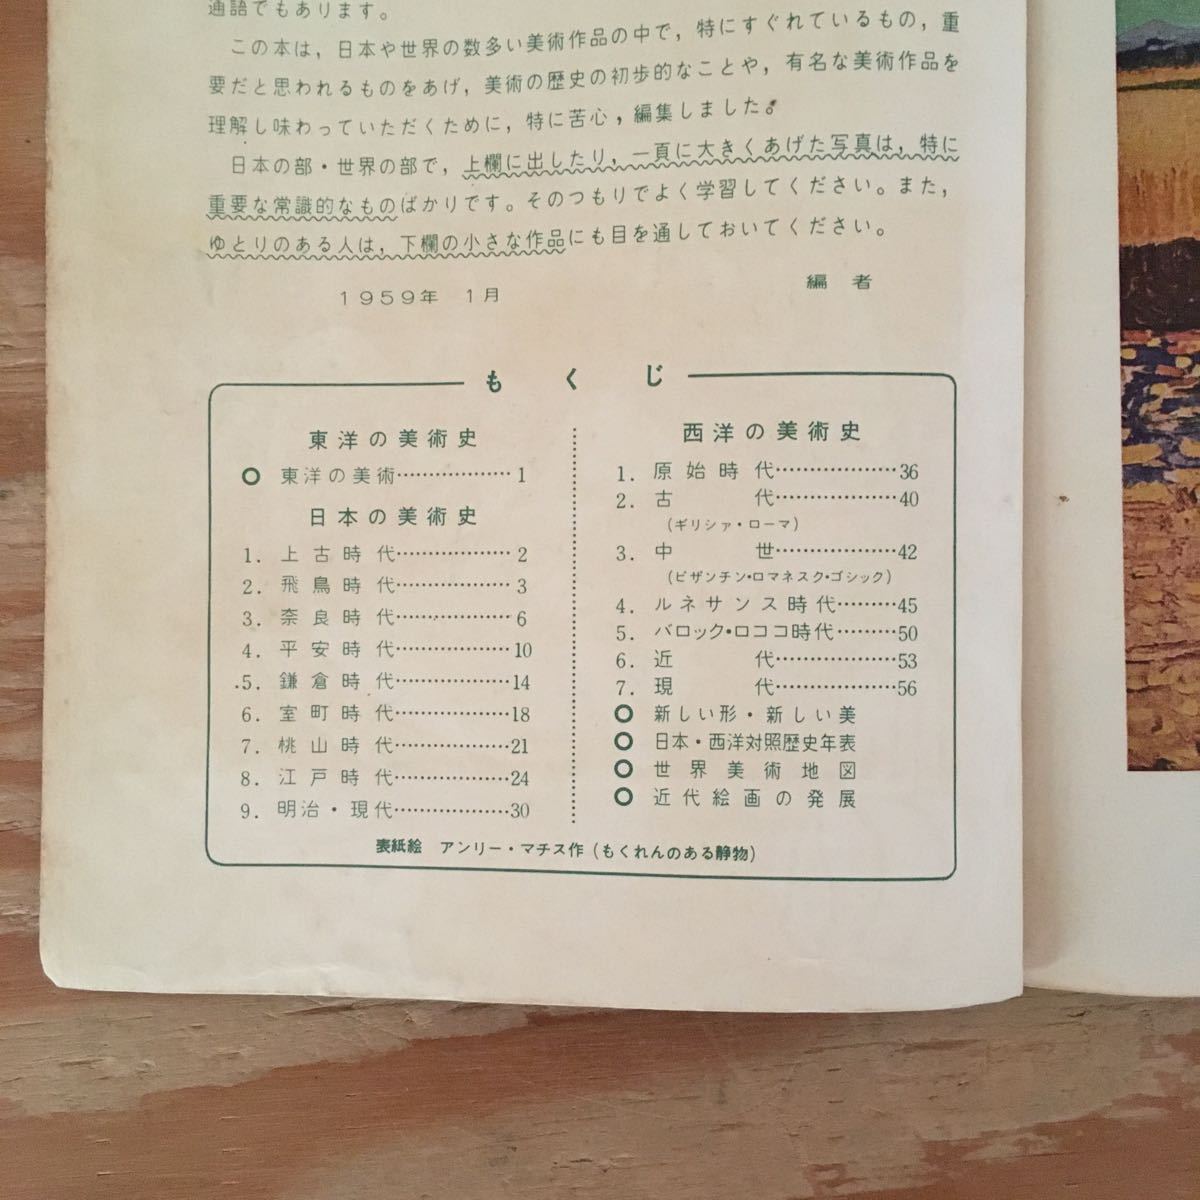 通語でもあります。
この本は，日本や世界の数多い美術作品の中で，特にすぐれているもの，重
要だと思われるものをあげ，美術の歴史の初歩的なことや，有名な美術作品を
理解し味わっていただくために，特に苦心，編集しました。
日本の部・世界の部で，上欄に出したり，一頁に大きくあげた写真は，特に
重要な常識的なものばかりです。そのつもりでよく学習してください。また，
ゆとりのある人は，下欄の小さな作品にも目を通しておいてください。
1959年 1月
編者
もくじ
東洋の美術史
○ 東洋の美術………………1
日本の美術史
1. 上古時代………………2
2. 飛鳥時代………………3
3. 奈良時代………………6
4. 平安時代………………10
5. 鎌倉時代………………14
6. 室町時代………………18
7. 桃山時代………………21
8. 江戸時代………………24
9. 明治・現代………………30
西洋の美術史
1. 原始時代………………36
2. 古代………………40
(ギリシァ・ローマ)
3. 中世………………42
(ビザンチン・ロマネスク・ゴシック)
4. ルネサンス時代………45
5. バロック・ロココ時代………50
6. 近代………………53
7. 現代………………56
○ 新しい形・新しい美
○ 日本・西洋対照歴史年表
○ 世界美術地図
○ 近代絵画の発展
表紙絵 アンリー・マチス作(もくれんのある静物)